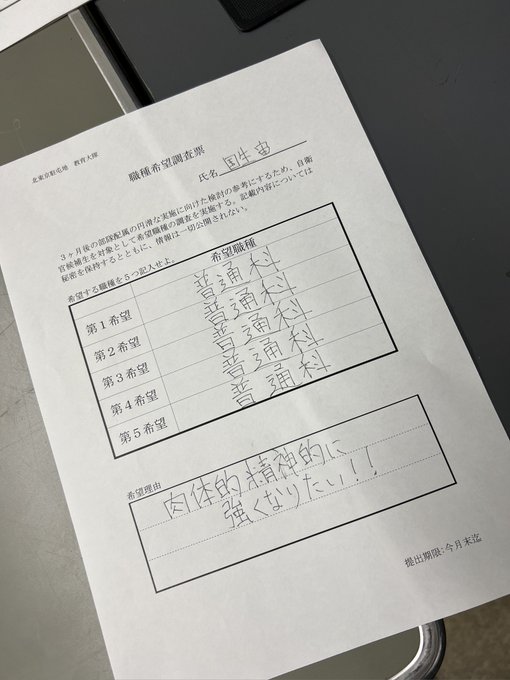 北東京駐屯地 教育大隊
職種希望調査票
氏名 国生 宙
3ヶ月後の部隊配属の円滑な実施に向けた検討の参考にするため、自衛
官候補生を対象として希望職種の調査を実施する。記載内容については
秘密を保持するとともに、情報は一切公開されない。
希望する職種を5つ記入せよ。
希望職種
第1希望 普通科
第2希望 普通科
第3希望 普通科
第4希望 普通科
第5希望 普通科
希望理由
肉体的精神的に
強くなりたい!!
提出期限:今月末迄